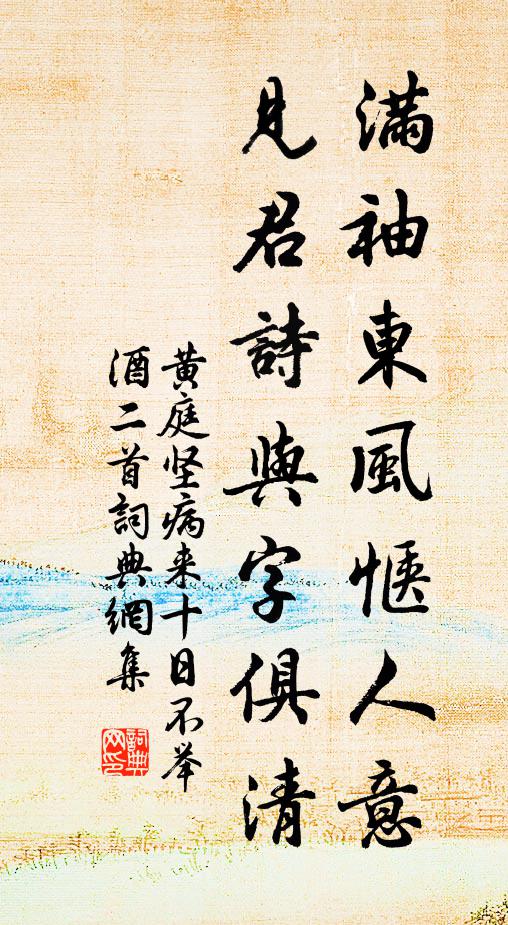 滿袖東風愜人意
見君詩與字俱清
黃庭坚病来十日不举
酒二首詞典網集
詞典
网印